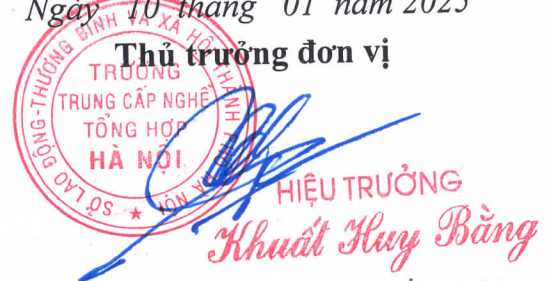 Ngày 10 tháng 01 năm 2025
Thủ trưởng đơn vị
SỞ LAO ĐỘNG-THƯƠNG BINH VÀ XÃ HỘI THÀNH PHỐ HÀ NỘI
TRƯỜNG
TRUNG CẤP NGHỀ
TỔNG HỢP
HÀ NỘI
HIỆU TRƯỞNG
Khuất Huy Bằng